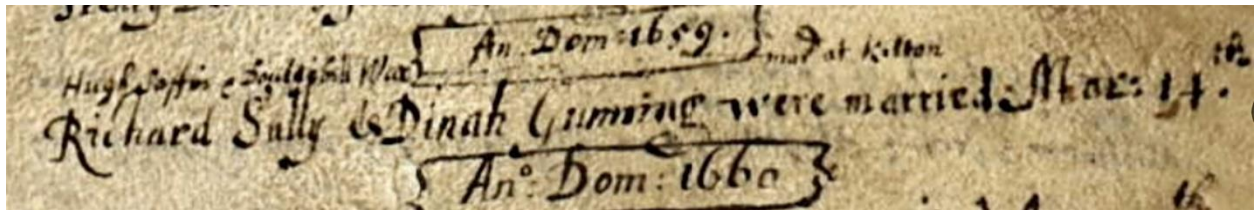 An. Dom: 1659.
Hugh Saffin & mard at Kilton
Richard Sully & Dinah Gunning were married: Mar: 14.th
An°: Dom: 1660
th